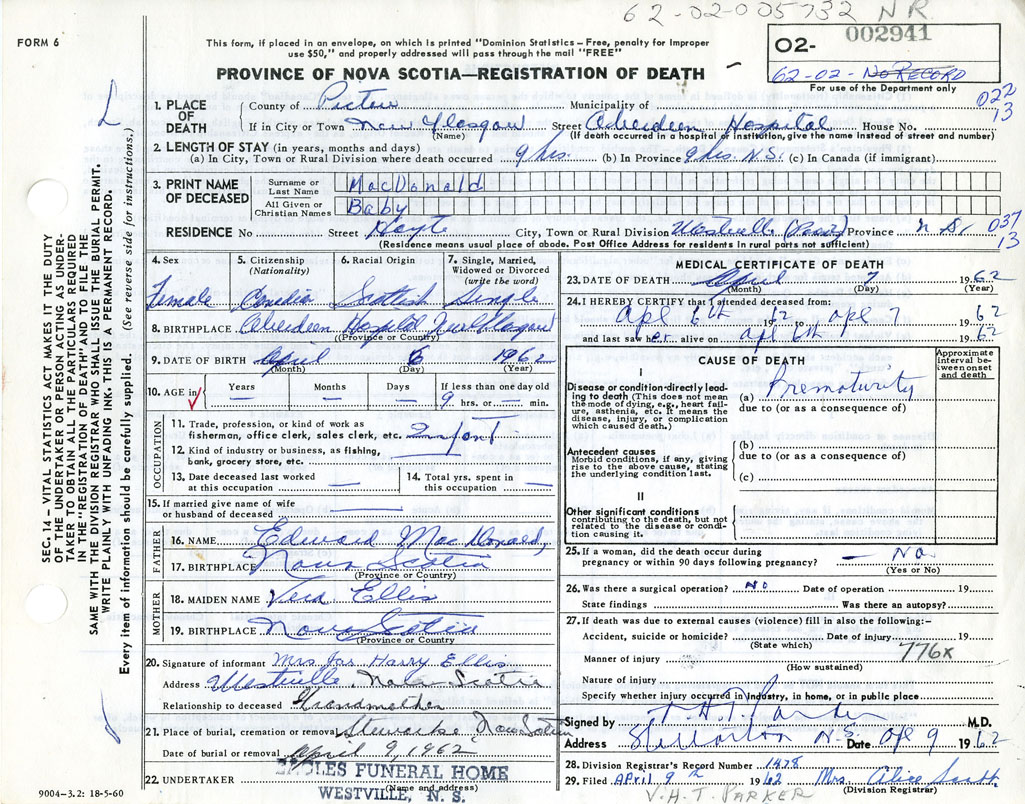 62-02-005732 NR
FORM 6
This form, if placed in an envelope, on which is printed "Dominion Statistics – Free, penalty for improper
use $50," and properly addressed will pass through the mail "FREE"
PROVINCE OF NOVA SCOTIA—REGISTRATION OF DEATH
O2- 002941
62-02- No RECORD
For use of the Department only
022
13
1. PLACE OF DEATH
County of Pictou Municipality of
If in City or Town New Glasgow Street Aberdeen Hospital House No.
(Name) (If death occurred in a hospital or institution, give the name instead of street and number)
2. LENGTH OF STAY (in years, months and days)
(a) In City, Town or Rural Division where death occurred 9 hrs. (b) In Province 9 hrs. N.S. (c) In Canada (if immigrant)
3. PRINT NAME OF DECEASED
Surname or Last Name MacDonald
All Given or Christian Names Baby
RESIDENCE No Street City, Town or Rural Division Westville Province N S. 037
13
(Residence means usual place of abode. Post Office Address for residents in rural parts not sufficient)
4. Sex Female
5. Citizenship (Nationality) Canadian
6. Racial Origin Scottish
7. Single, Married, Widowed or Divorced (write the word) Single
8. BIRTHPLACE Aberdeen Hospital New Glasgow
(Province or Country)
9. DATE OF BIRTH April 6 1962
(Month) (Day) (Year)
10. AGE in Years — Months — Days — If less than one day old
9 hrs. or — min.
OCCUPATION
11. Trade, profession, or kind of work as
fisherman, office clerk, sales clerk, etc. Infant
12. Kind of industry or business, as fishing,
bank, grocery store, etc.
13. Date deceased last worked
at this occupation —
14. Total yrs. spent in
this occupation —
15. If married give name of wife
or husband of deceased —
FATHER
16. NAME Edward MacDonald
17. BIRTHPLACE Nova Scotia
(Province or Country)
MOTHER
18. MAIDEN NAME Vera Ellis
19. BIRTHPLACE Nova Scotia
(Province or Country)
20. Signature of informant Mrs Jas Harry Ellis
Address Westville Nova Scotia
Relationship to deceased Grandmother
21. Place of burial, cremation or removal Stewiacke Nova Scotia
Date of burial or removal April 9, 1962
22. UNDERTAKER EAGLES FUNERAL HOME
(Name and address)
WESTVILLE, N. S.
9004-3.2: 18-5-60
MEDICAL CERTIFICATE OF DEATH
23. DATE OF DEATH April 7 1962
(Month) (Day) (Year)
24. I HEREBY CERTIFY that I attended deceased from:
Apl 6th 1962 to Apl 7 1962
and last saw her alive on apl 6th 1962
CAUSE OF DEATH
Approximate interval between onset and death
I
Disease or condition directly leading to death (This does not mean
the mode of dying, e.g., heart failure, asthenia, etc. It means the
disease, injury, or complication
which caused death.)
(a) Prematurity
due to (or as a consequence of)
Antecedent causes
Morbid conditions, if any, giving
rise to the above cause, stating
the underlying condition last.
(b)
due to (or as a consequence of)
(c)
II
Other significant conditions
contributing to the death, but not
related to the disease or condition causing it.
25. If a woman, did the death occur during
pregnancy or within 90 days following pregnancy? — No
(Yes or No)
26. Was there a surgical operation? No Date of operation 19
State findings Was there an autopsy?
27. If death was due to external causes (violence) fill in also the following:—
Accident, suicide or homicide? Date of injury 19
(State which) 776x
Manner of injury
(How sustained)
Nature of injury
Specify whether injury occurred in industry, in home, or in public place
Signed by V.H.T. Parker M.D.
Address Stellarton N.S. Date Apl 9 1962
28. Division Registrar's Record Number 1478
29. Filed APRIL 9 1962 Mrs. Alice Scott
(Division Registrar)
V.H.T. PARKER
SEC. 14 – VITAL STATISTICS ACT MAKES IT THE DUTY
OF THE UNDERTAKER OR PERSON ACTING AS UNDERTAKER
TO OBTAIN ALL THE PARTICULARS REQUIRED
IN THE "REGISTRATION OF DEATH" AND TO FILE THE
SAME WITH THE DIVISION REGISTRAR WHO SHALL ISSUE THE BURIAL PERMIT.
WRITE PLAINLY WITH UNFADING INK. THIS IS A PERMANENT RECORD.
Every item of information should be carefully supplied. (See reverse side for instructions.)